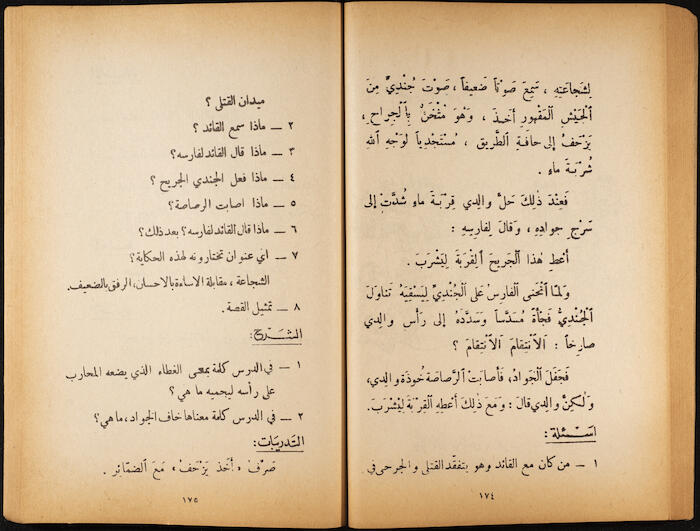 لِشَجاعَتِهِ ، سَمِعَ صَوْتاً ضَعيفاً ، صَوْتَ جُنْدِيٍّ مِنَ
الْجَيْشِ الْمَقْهورِ أَخَذَ ، وَهُوَ مُثْخَنٌ بِالْجِراحِ ،
يَزْحَفُ إلى حافَةِ الطَّريقِ ، مُسْتَجْدِياً لِوَجْهِ اللهِ
شُرْبَةَ ماءٍ .
فَعِنْدَ ذلِكَ حَلَّ والِدي قِرْبَةَ ماءٍ شُدَّتْ إلى
سَرْجِ جوادِهِ ، وَقالَ لِفارِسِهِ :
أَعْطِ هٰذا الْجَريحَ الْقِرْبَةَ لِيَشْرَبَ .
وَلَمّا انْحَنى الْفارِسُ عَلى الْجُنْدِيِّ لِيَسْقِيَهُ تَناوَلَ
الْجُنْدِيُّ فَجْأَةً مُسَدَّساً وَسَدَّدَهُ إلى رَأْسِ والِدي
صارِخاً : الْاِنْتِقامَ الْاِنْتِقامَ ؟
فَجَفَلَ الْجَوادُ ، فَأَصابَتْ الرَّصاصَةُ خُوذَةَ والِدي ،
وَلٰكِنَّ والِدي قالَ : وَمَعَ ذٰلِكَ أَعْطِهِ الْقِرْبَةَ لِيَشْرَبَ .
اسئلة :
١ – من كان مع القائد وهو يتفقد القتلى والجرحى في
١٧٤
ميدان القتلى ؟
٢ – ماذا سمع القائد ؟
٣ – ماذا قال القائد لفارسه ؟
٤ – ماذا فعل الجندي الجريح ؟
٥ – ماذا اصابت الرصاصة ؟
٦ – ماذا قال القائد لفارسه ؟ بعد ذلك ؟
٧ – اي عنوان تختارونه لهذه الحكاية ؟
الشجاعة ، مقابلة الاساءة بالاحسان ، الرفق بالضعيف .
٨ – تمثيل القصة .
الشرح :
١ – في الدرس كلمة بمعنى الغطاء الذي يضعه المحارب
على رأسه ليحميه ما هي ؟
٢ – في الدرس كلمة معناها خاف الجواد ، ما هي ؟
التدريبات :
صَرِّفْ ، أَخَذَ يَزْحَفُ ، مَعَ الضَّمائِرِ .
١٧٥